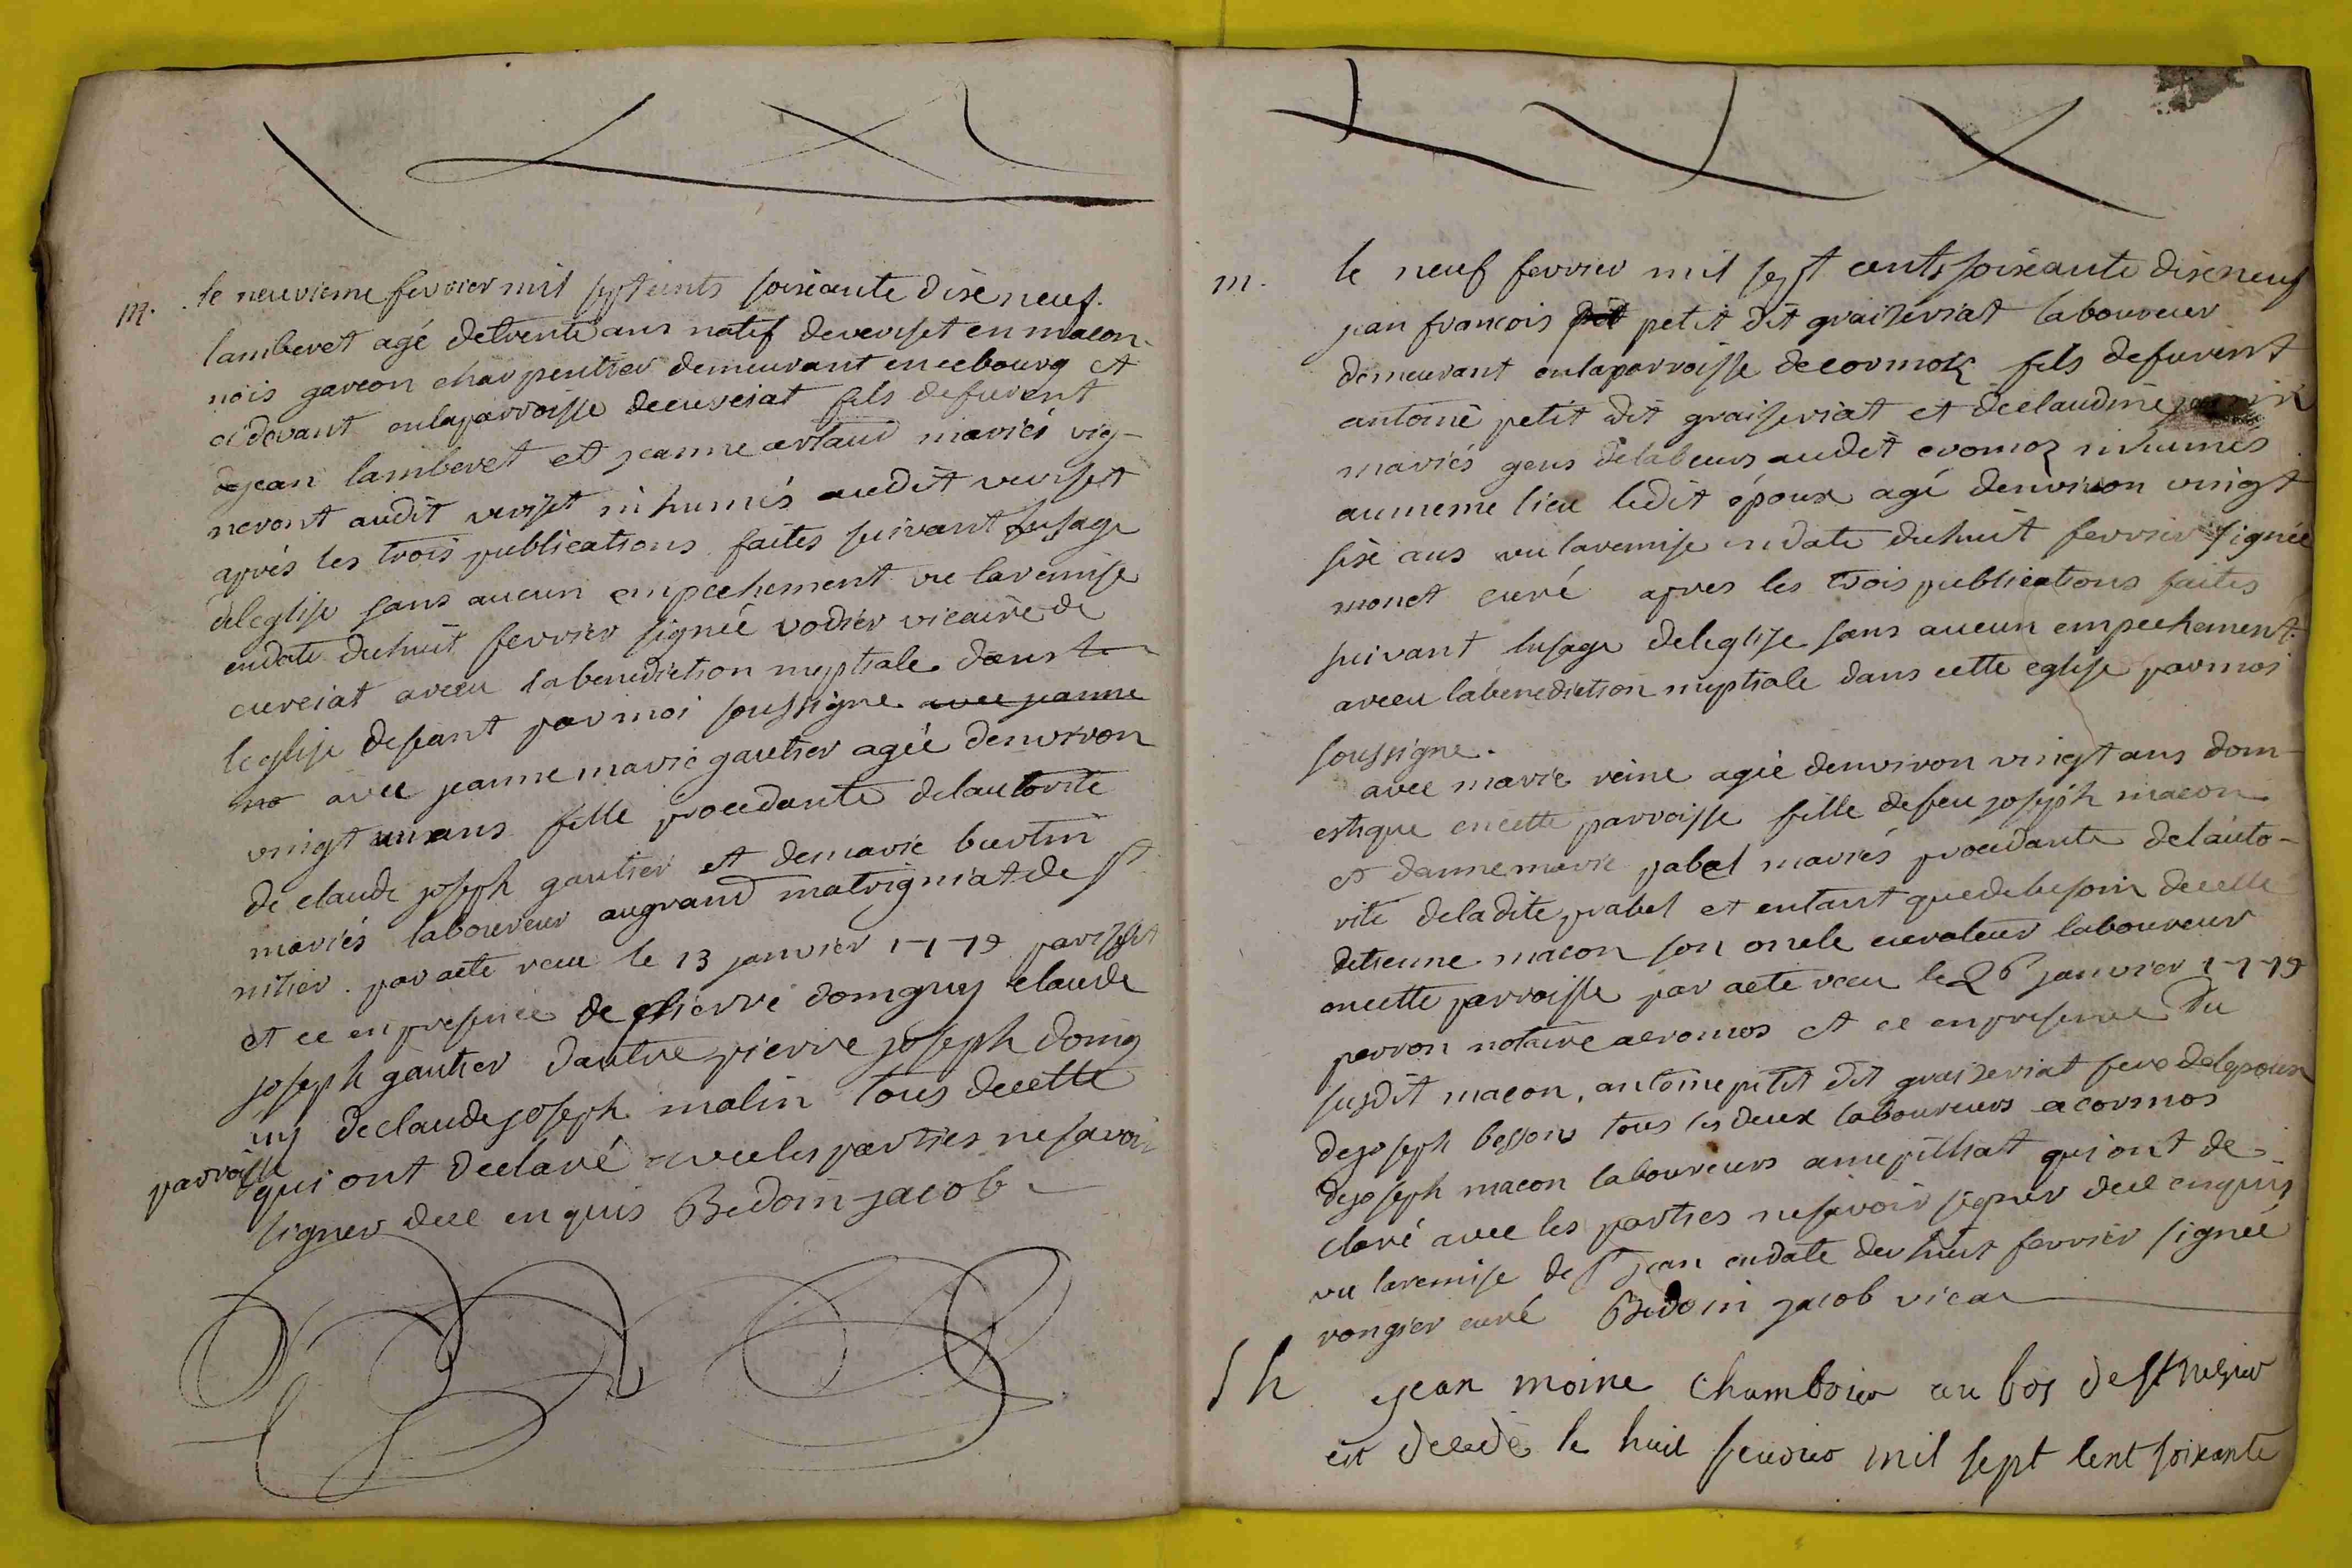 m. le neuvieme fevrier mil sept cents soixante dixe neuf.
lamberet agé detrente ans natif deverset en macon-
nois garcon charpentier demeurant encebourg et
cidevant enlaparroisse decurciat fils defurent
dejean lamberet et jeanne artaud mariés vig-
neront audit verset inhumés audit verset
aprés les trois publications faites suivant lusage
deleglise sans aucun empechement vu laremise
endate duhuit fevrier signéé vodier vicaire de
curciat areceu labenediction nuptiale dans
leglise deseant parmoi soussigne avec jeanne
avec jeanne marie gautier agéé denviron
vingt un ans fille procedante delautorite
de claude joseph gautier et demarie burtin
mariés laboureur augrand matrigniat de st
nisier par acte receu le 13 janvier 1779
et ce en presence de pierre domguy claude
joseph gautier dautre pierre joseph domg
uy declaude joseph malin tous decette
parroisse qui ont declaré avec les parties nesavoir
signer dece enquis Bedoin jacob
m. le neuf fevrier mil sept cents soixante dixe neuf
jean francois petit dit graiseriat laboureur
demeurant enlaparroisse decormoz fils defurent
antoine petit dit graiseriat et declaudine
mariés gens delabeurs audit cromoz inhumes
aumeme lieu ledit époux agé denviron vingt
sixe ans vu laremise endate duhuit fevrier signéé
monet curé apres les trois publications faites
suivant lusage deleglise sans aucun empechement
areceu labenediction nuptiale dans cette eglise parmoi
soussigne.
avec marie reine agéé denviron vingt ans dom-
estique encette parroisse fille defeu joseph macon
et danne marie pabel mariés procedante delauto-
rite deladite pabel et entant quedebesoin decelle
detienne macon son oncle curateur laboureur
encette parroisse par acte receu le 26 janvier 1779
perron notaire acromos et ce enpresence Du
susdit macon, antoine petit dit graiseriat frere delepoux
dejoseph besson tous les deux laboureurs acormos
dejoseph macon laboureurs qui ont de-
claré avec les parties nesavoir signer dece enquis
vu laremise de st jean endate du huit fevrier signéé
rongier curé Bedoin jacob vicar
Sh jean moine Chambrier au bos de st
est decede le huit feuvrier mil sept cent soixante